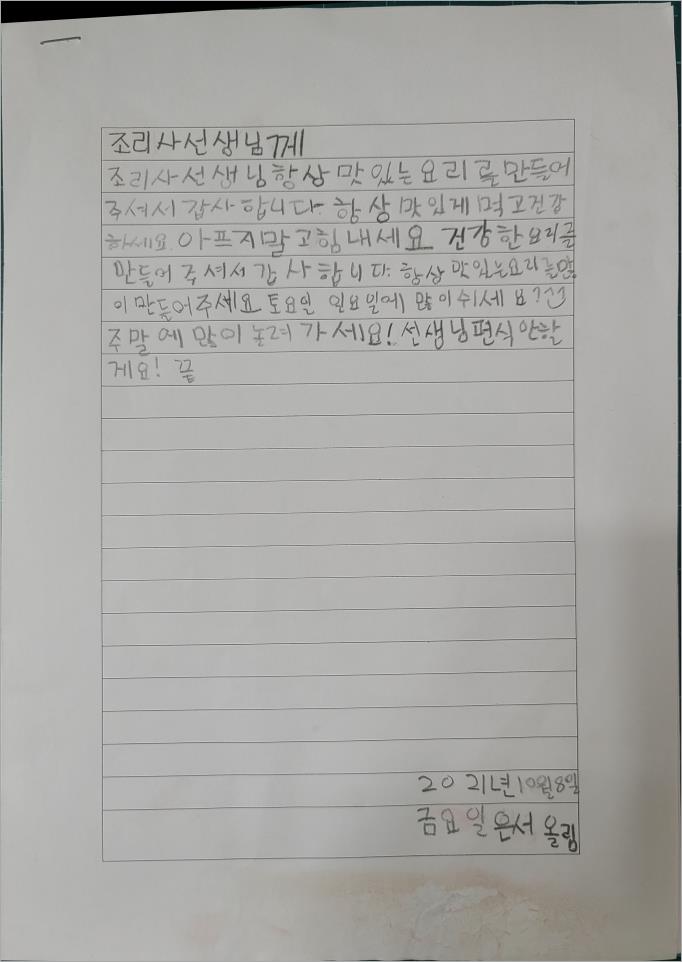 조리사선생님께
조리사선생님항상 맛있는요리를만들어
주셔서 감사합니다. 항상 맛있게먹고건강
하세요. 아프지말고힘내세요 건강한요리를
만들어 주셔서 감사합니다. 항상 맛있는요리를많
이 만들어주세요 토요일 일요일에 많이쉬세요?
주말에 많이 놀려 가세요! 선생님편식안할
게요! 끝
2021년10월8일
금요일 은서 올림